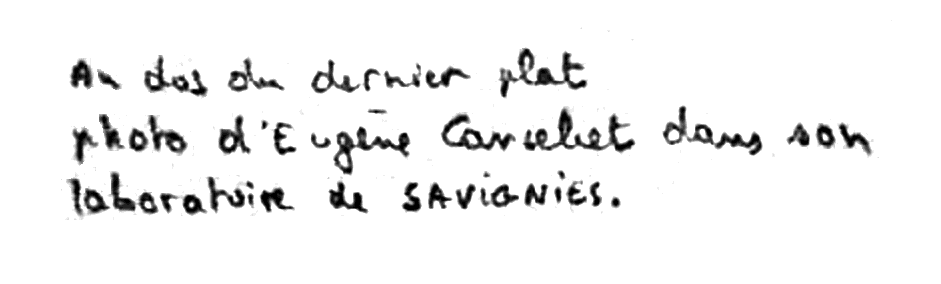 Au dos du dernier plat
photo d'Eugène Canseliet dans son
laboratoire de SAVIGNIES.